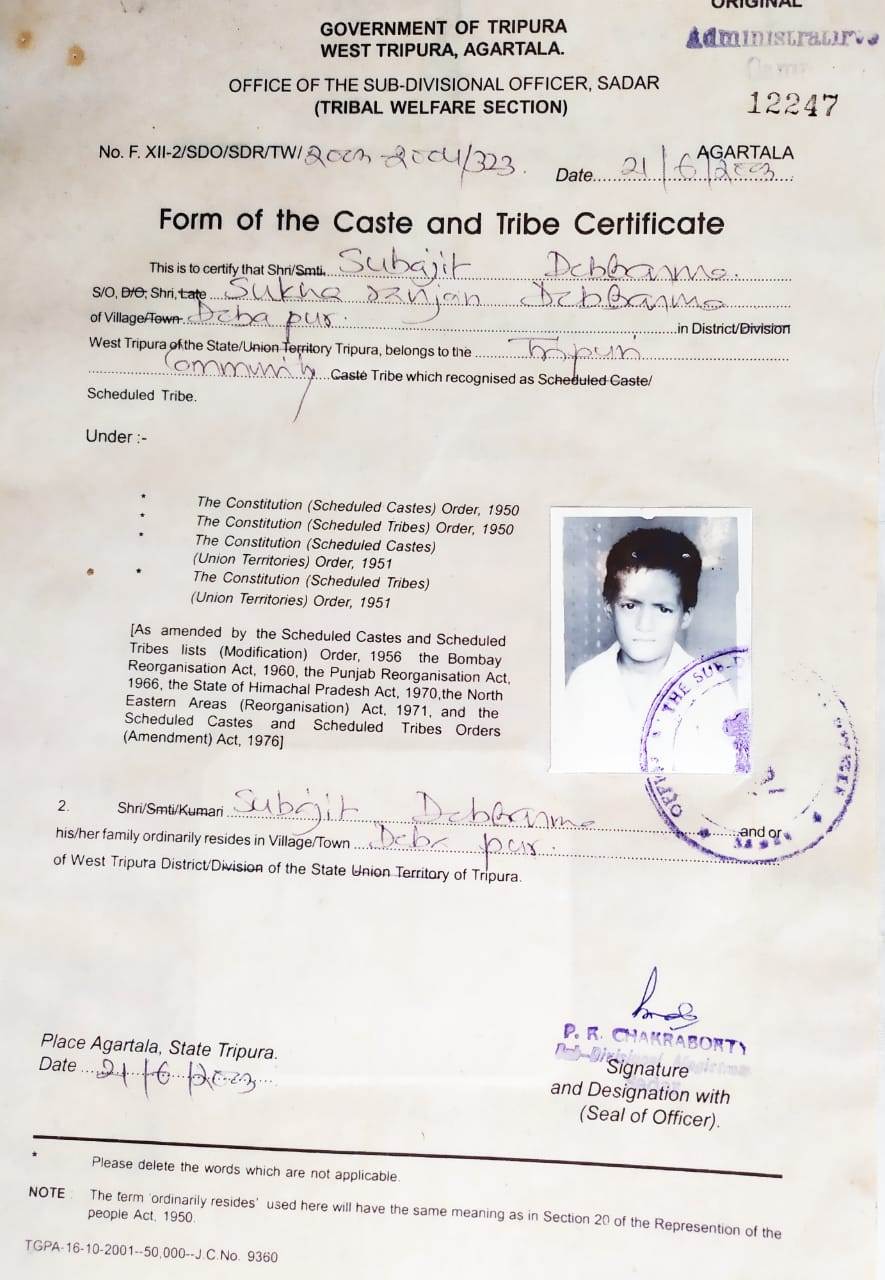 ORIGINAL
GOVERNMENT OF TRIPURA
WEST TRIPURA, AGARTALA.
Administrative
OFFICE OF THE SUB-DIVISIONAL OFFICER, SADAR
(TRIBAL WELFARE SECTION)
12247
No. F. XII-2/SDO/SDR/TW/ 2003-2004/323.
AGARTALA
Date....21/6/2003....
Form of the Caste and Tribe Certificate
This is to certify that Shri/Smti. Subajit DebBarma.
S/O, D/O, Shri, Late Sukha ranjan DebBarma
of Village/Town Deba pur. in District/Division
West Tripura of the State/Union Territory Tripura, belongs to the Tripuri
Community Caste Tribe which recognised as Scheduled Caste/
Scheduled Tribe.
Under :-
* The Constitution (Scheduled Castes) Order, 1950
* The Constitution (Scheduled Tribes) Order, 1950
* The Constitution (Scheduled Castes)
(Union Territories) Order, 1951
* The Constitution (Scheduled Tribes)
(Union Territories) Order, 1951
[As amended by the Scheduled Castes and Scheduled
Tribes lists (Modification) Order, 1956 the Bombay
Reorganisation Act, 1960, the Punjab Reorganisation Act,
1966, the State of Himachal Pradesh Act, 1970,the North
Eastern Areas (Reorganisation) Act, 1971, and the
Scheduled Castes and Scheduled Tribes Orders
(Amendment) Act, 1976]
THE SUB-D
2. Shri/Smti/Kumari Subajit DebBarma and or
his/her family ordinarily resides in Village/Town Deba pur.
of West Tripura District/Division of the State Union Territory of Tripura.
P. R. CHAKRABORTY
Place Agartala, State Tripura.
Date 21/6/2003
Signature
and Designation with
(Seal of Officer).
* Please delete the words which are not applicable.
NOTE : The term 'ordinarily resides' used here will have the same meaning as in Section 20 of the Represention of the
people Act, 1950.
TGPA-16-10-2001--50,000--J.C.No. 9360